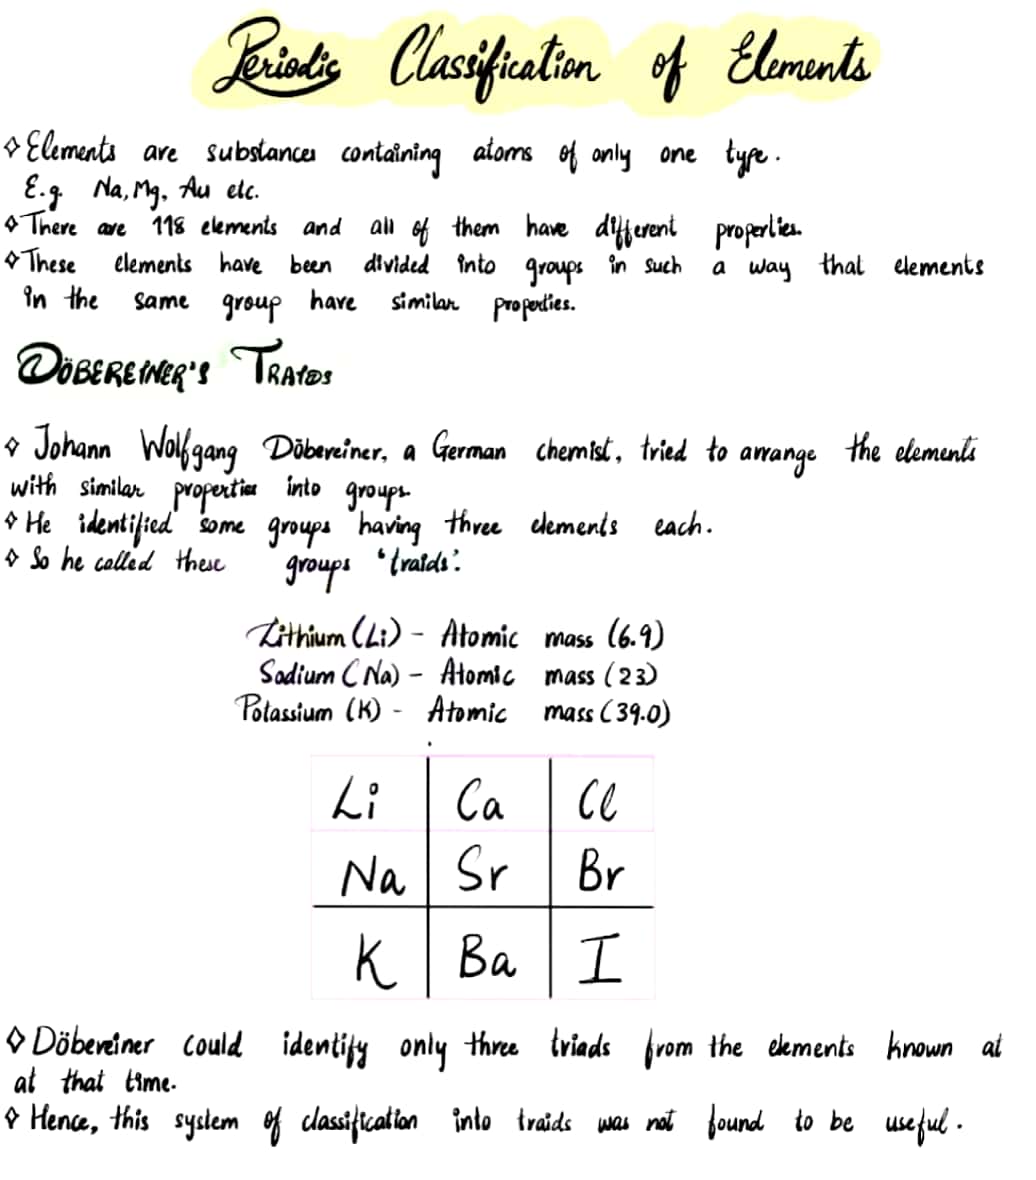 Periodic Classification of Elements
◇ Elements are substances containing atoms of only one type.
E.g. Na, Mg, Au etc.
◇ There are 118 elements and all of them have different properties.
◇ These elements have been divided into groups in such a way that elements
in the same group have similar properties.
DÖBEREINER'S TRAIDS
◇ Johann Wolfgang Döbereiner, a German chemist, tried to arrange the elements
with similar properties into groups.
◇ He identified some groups having three elements each.
◇ So he called these groups 'traids'.
Lithium (Li) - Atomic mass (6.9)
Sodium (Na) - Atomic mass (23)
Potassium (K) - Atomic mass (39.0)
Li Ca Cl
Na Sr Br
K Ba I
◇ Döbereiner could identify only three triads from the elements known at
at that time.
◇ Hence, this system of classification into traids was not found to be useful.